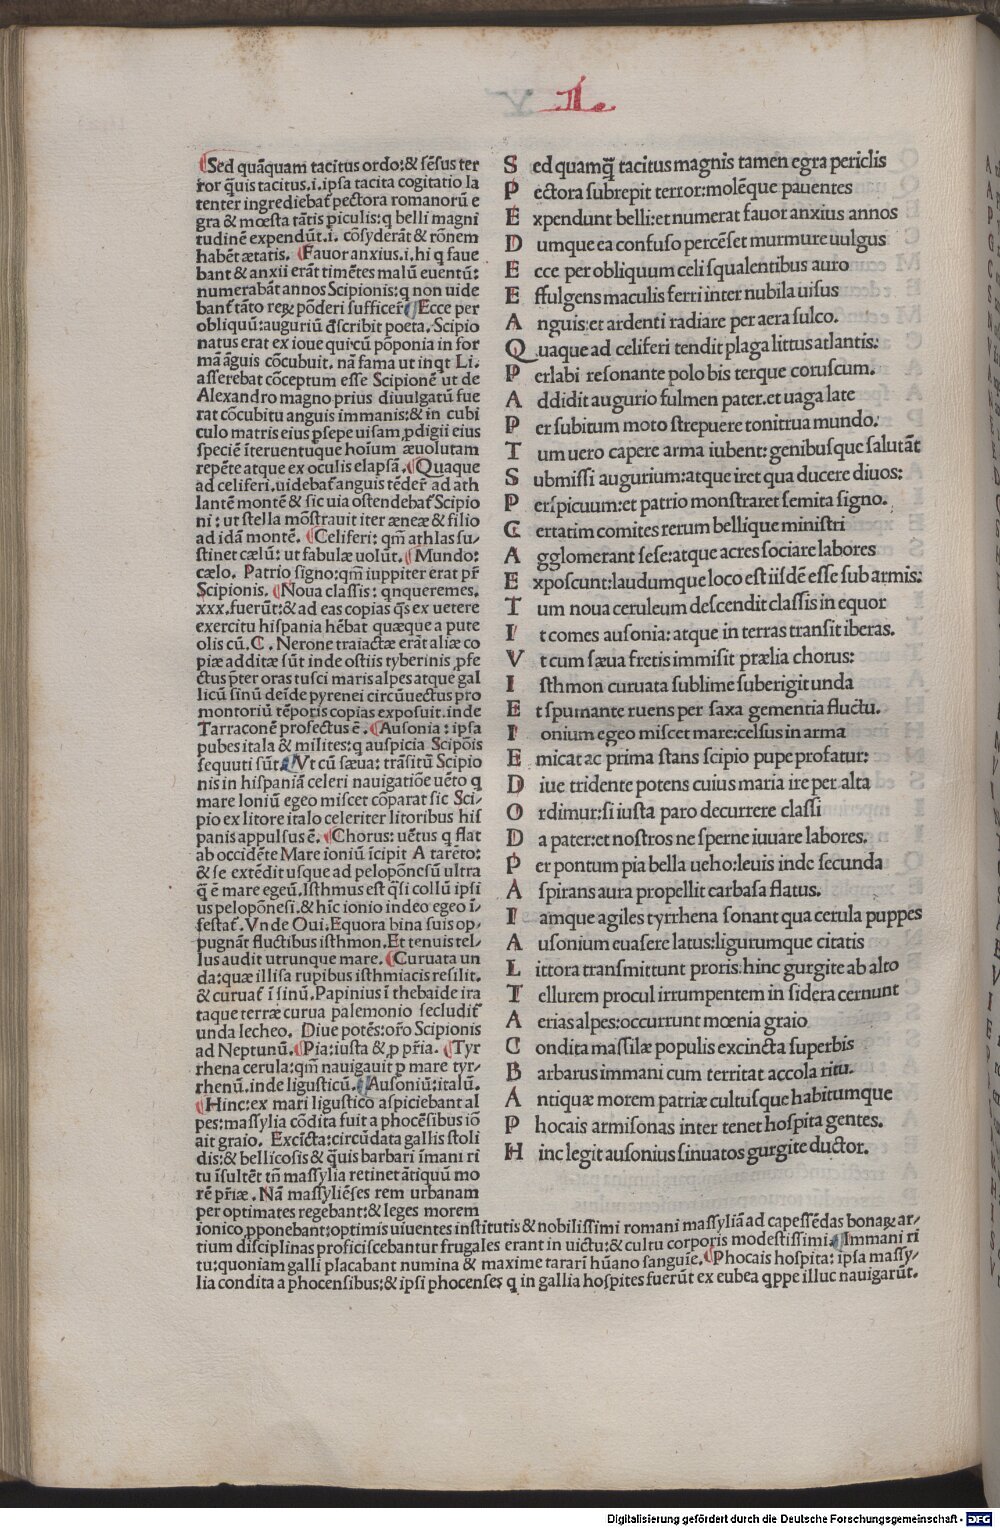 .II.
Sed quãquam tacitus ordo:& sẽsus ter
ror q̃uis tacitus.i.ipsa tacita cogitatio la
tenter ingrediebat̃ pectora romanorũ e
gra & mœsta tãtis piculis:q belli magni
tudinẽ expendũt.i. cõsyderãt & rõnem
habẽt ætatis. Fauor anxius.i.hi q faue
bant & anxii erãt timẽtes malũ euentũ:
numerabãt annos Scipionis:q non uide
bant̃ tãto regꝝ põderi sufficer̃ Ecce per
obliquũ:auguriũ d̃scribit poeta. Scipio
natus erat ex ioue qui cũ põponia in for
mã ãguis cõcubuit. nã fama ut inqt Li.
asserebat cõceptum esse Scipionẽ ut de
Alexandro magno prius diuulgatũ fue
rat cõcubitu anguis immanis:& in cubi
culo matris eius p̱sepe uisam ꝓdigii eius
speciẽ ĩteruentuque hoĩum æuolutam
repẽte atque ex oculis elapsã. Quaque
ad celiferi.uidebat̃ anguis tẽder̃ ad ath
lantẽ montẽ & sic uia ostendebat̃ Scipio
ni: ut stella mõstrauit iter æneæ & filio
ad idã montẽ. Celiferi: qm̃ athlas su-
stinet cælũ: ut fabulæ uolũt. Mundo:
cælo. Patrio signo:qm̃ iuppiter erat pr̃
Scipionis. Noua classis: qnqueremes.
xxx.fuerũt:& ad eas copias q̃s ex uetere
exercitu hispania hẽbat quæque a pute
olis cũ. C. Nerone traiactæ erãt aliæ co
piæ additæ sũt inde ostiis tyberinis ꝓfe
ctus p̃ter oras tusci maris alpes atque gal
licũ sinũ deĩde pyrenei circũuectus pro
montoriũ tẽporis copias exposuit.inde
Tarraconẽ profectus ẽ. Ausonia: ipsa
pubes itala & milites:q auspicia Scipõis
sequuti sũt. Vt cũ sæua: trãsitũ Scipio
nis in hispaniã celeri nauigatiõe uẽto q
mare Ioniũ egeo miscet cõparat sic Sci-
pio ex litore italo celeriter litoribus his
panis appulsus ẽ. Chorus: uẽtus q flat
ab occidẽte Mare ioniũ ĩcipit A tarẽto:
& se extẽdit usque ad pelopõnesũ ultra
q̃ ẽ mare egeũ.Isthmus est q̃si collũ ipsi
us pelopõnesi.& hĩc ionio indeo egeo ĩ-
festat̃. Vnde Oui.Equora bina suis op-
pugnãt fluctibus isthmon.Et tenuis tel-
lus audit utrunque mare. Curuata un
da:quæ illisa rupibus isthmiacis resilit.
& curuat̃ ĩ sinũ.Papinius ĩ thebaide ira
taque terræ curua palemonio secludit̃
unda lecheo. Diue potẽs:or̃o Scipionis
ad Neptunũ. Pia:iusta & ꝓ pr̃ia. Tyr
rhena cerula:qm̃ nauigauit p mare tyr-
rhenũ.inde ligusticũ. Ausoniũ:italũ.
Hinc:ex mari ligustico aspiciebant al
pes:massylia cõdita fuit a phocẽsibus iõ
ait graio. Excĩcta:circũdata gallis stoli
dis:& bellicosis & q̃uis barbari ĩmani ri
tu ĩsultẽt tñ massylia retinet ãtiquũ mo
rẽ pr̃iæ. Nã massyliẽses rem urbanam
per optimates regebant:& leges morem
ionico ꝓponebant:optimis uiuentes institutis & nobilissimi romani massyliã ad capessẽdas bonaꝝ ar-
tium disciplinas proficiscebantur frugales erant in uictu:& cultu corporis modestissimi. Immani ri
tu:quoniam galli placabant numina & maxime tarari hũano sanguĩe. Phocais hospita: ipsa massy-
lia condita a phocensibus:& ipsi phocenses q in gallia hospites fuerũt ex eubea qppe illuc nauigarũt.
S ed quamq̃ꝫ tacitus magnis tamen egra periclis
P ectora subrepit terror:molẽque pauentes
E xpendunt belli:et numerat fauor anxius annos
D umque ea confuso percẽset murmure uulgus
E cce per obliquum celi squalentibus auro
E ffulgens maculis ferri inter nubila uisus
A nguis:et ardenti radiare per aera sulco.
Q uaque ad celiferi tendit plaga littus atlantis:
P erlabi resonante polo bis terque coruscum.
A ddidit augurio fulmen pater.et uaga late
P er subitum moto strepuere tonitrua mundo.
T um uero capere arma iubent: genibusque salutãt
S ubmissi augurium:atque iret qua ducere diuos:
P erspicuum:et patrio monstraret semita signo.
C ertatim comites rerum bellique ministri
A gglomerant sese:atque acres sociare labores
E xposcunt:laudumque loco est iisdẽ esse sub armis:
T um noua ceruleum descendit classis in equor
I t comes ausonia: atque in terras transit iberas.
V t cum sæua fretis immisit prælia chorus:
I sthmon curuata sublime suberigit unda
E t spumante ruens per saxa gementia fluctu.
I onium egeo miscet mare:celsus in arma
E micat ac prima stans scipio pupe profatur:
D iue tridente potens cuius maria ire per alta
O rdimur:si iusta paro decurrere classi
D a pater:et nostros ne sperne iuuare labores.
P er pontum pia bella ueho:leuis inde secunda
A spirans aura propellit carbasa flatus.
I amque agiles tyrrhena sonant qua cerula puppes
A usonium euasere latus:ligurumque citatis
L ittora transmittunt proris:hinc gurgite ab alto
T ellurem procul irrumpentem in sidera cernunt
A erias alpes:occurrunt mœnia graio
C ondita massilæ populis excincta superbis
B arbarus immani cum territat accola ritu.
A ntiquæ morem patriæ cultusque habitumque
P hocais armisonas inter tenet hospita gentes.
H inc legit ausonius sinuatos gurgite ductor.
Digitalisierung gefördert durch die Deutsche Forschungsgemeinschaft - DFG